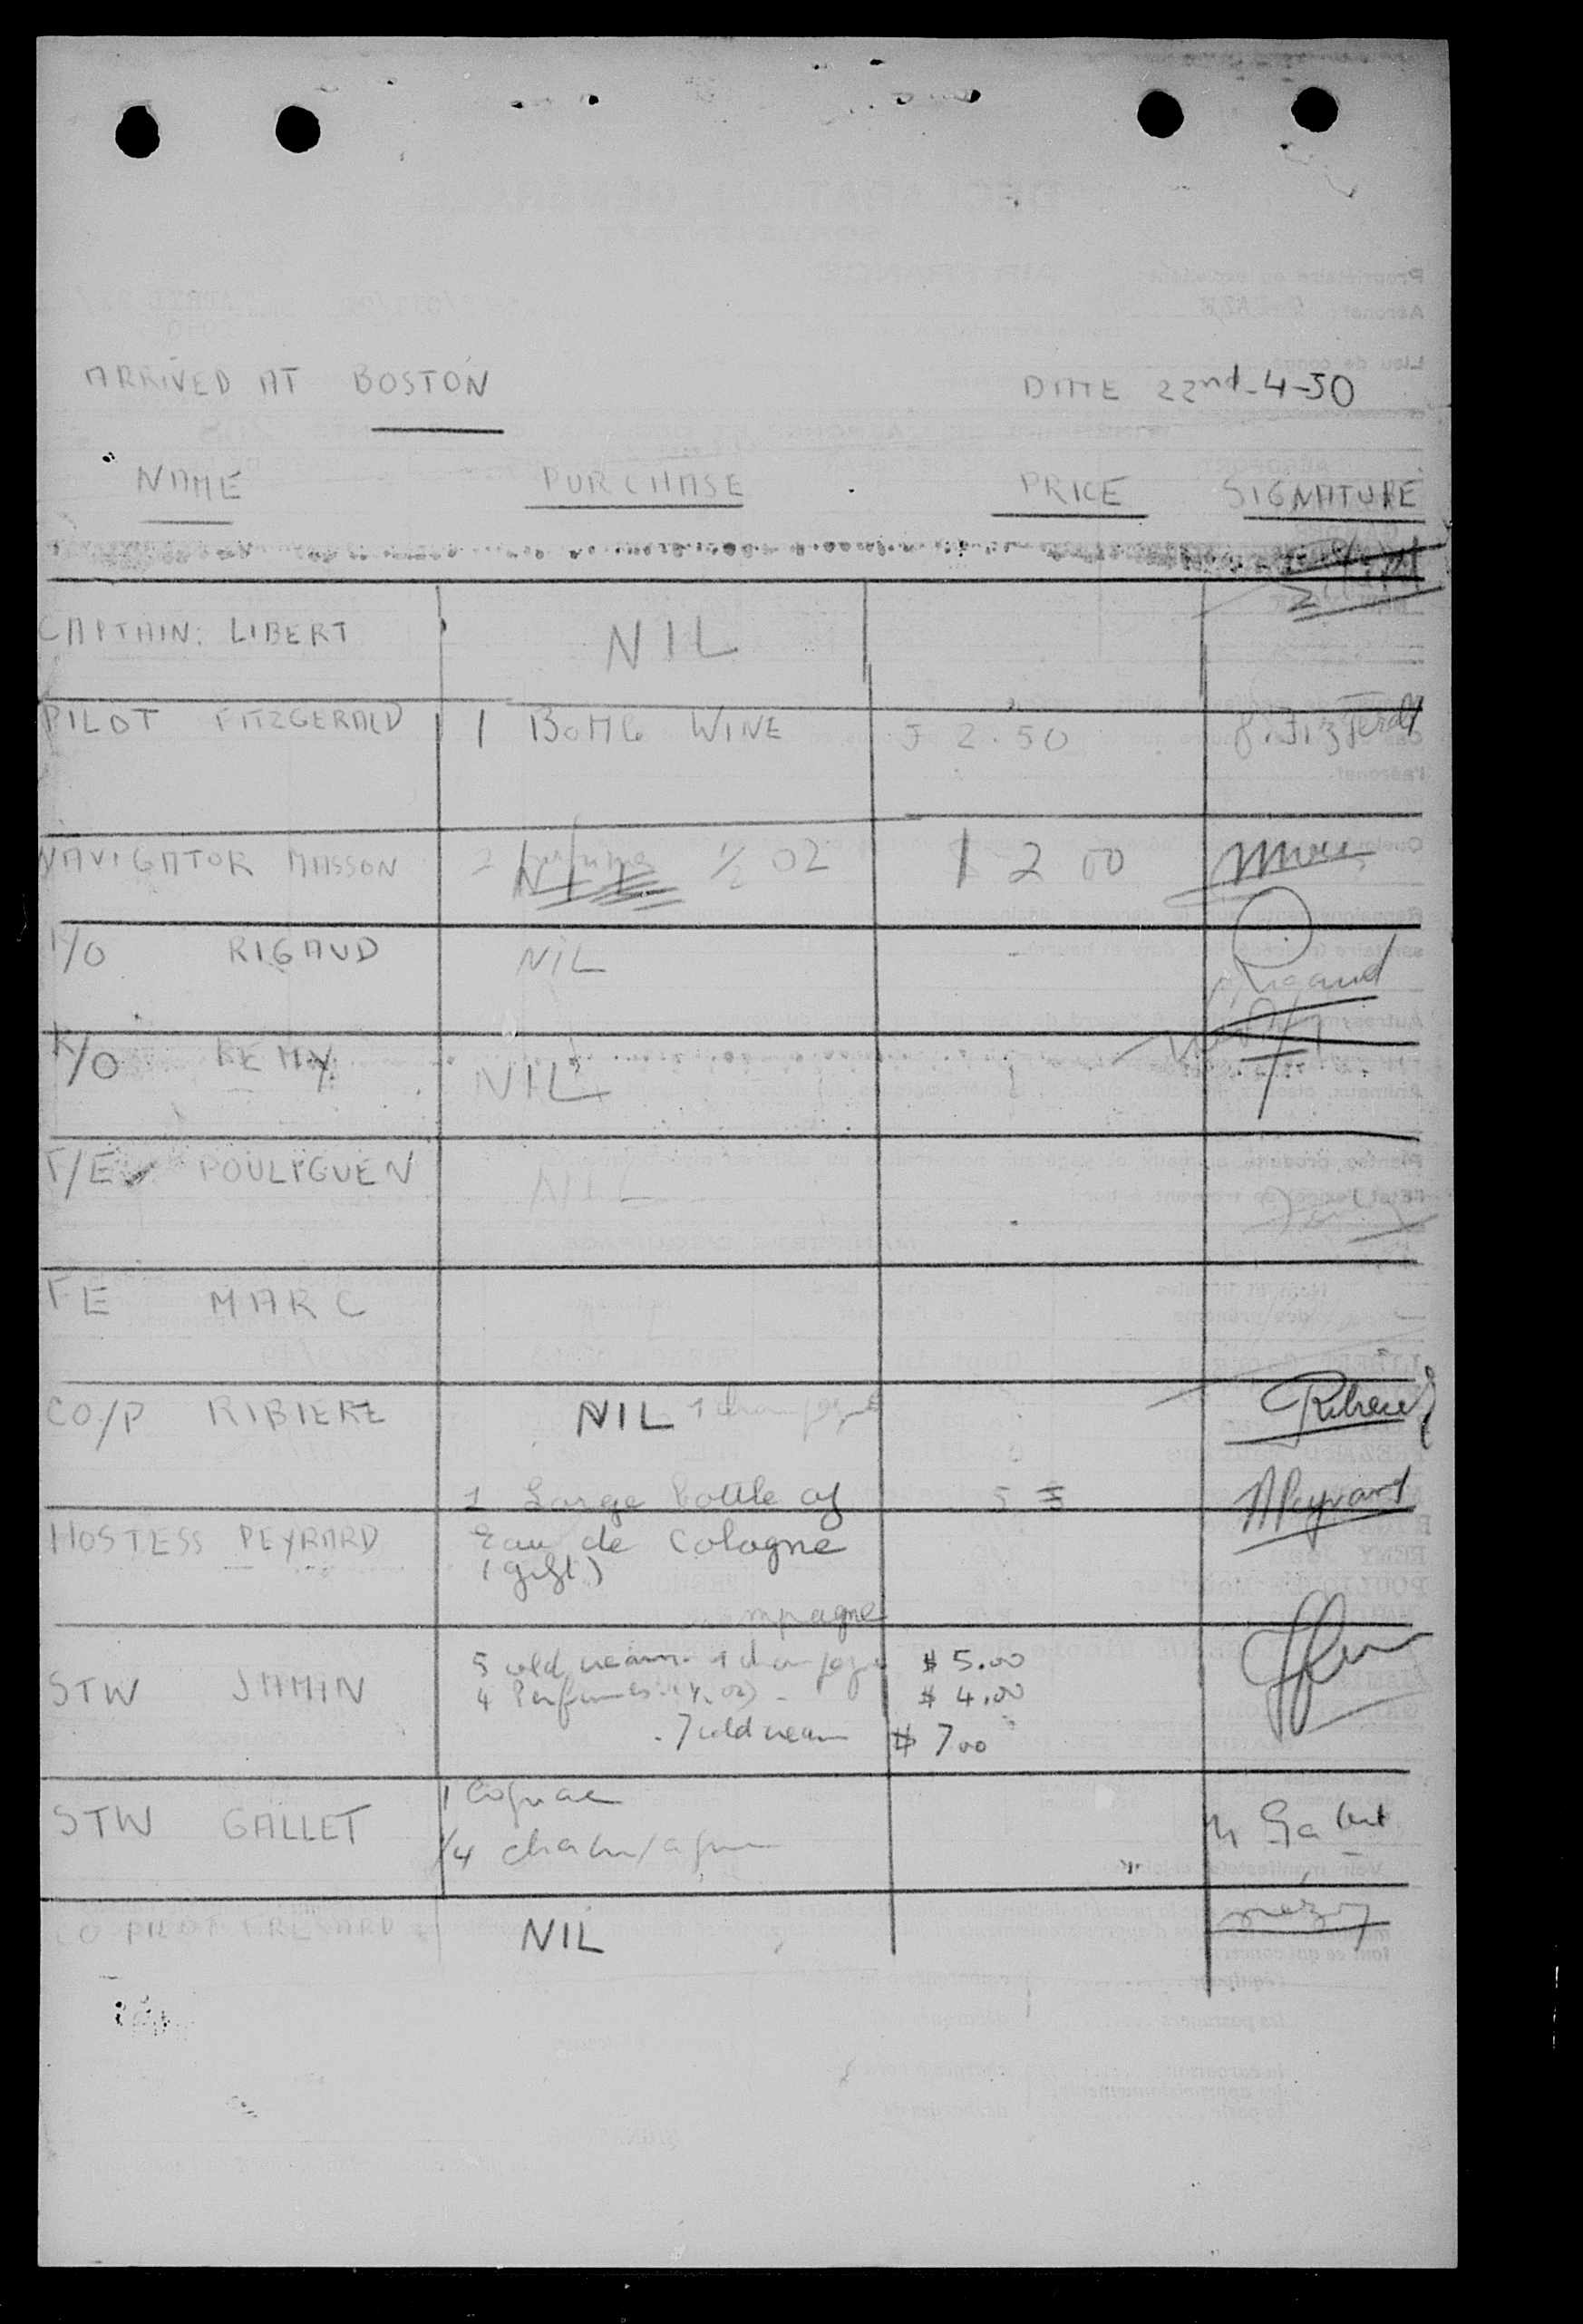 ARRIVED AT BOSTON DATE 22nd-4-50
NAME PURCHASE PRICE SIGNATURE
CAPTAIN: LIBERT NIL
PILOT FITZGERALD 1 WINE 2.50 Fitzgerald
NAVIGATOR MASSON 2 ½ OZ 2 00
RIGAUD NIL
Rigaud
REMY NIL
F/E POULIGUEN NIL
FE MARC
CO/P RIBIERE NIL 1 champagne Ribiere
1 Large bottle of 5 Peyrard
HOSTESS PEYRARD Eau de Cologne
(gift)
5 cold cream. 1 champagne $ 5.00
STW JAMIN 4 Perfumes $ 4.00
7 cold cream $ 7 00
1 Cognac
STW GALLET 1/4 champagne Gallet
CO PILOT NIL